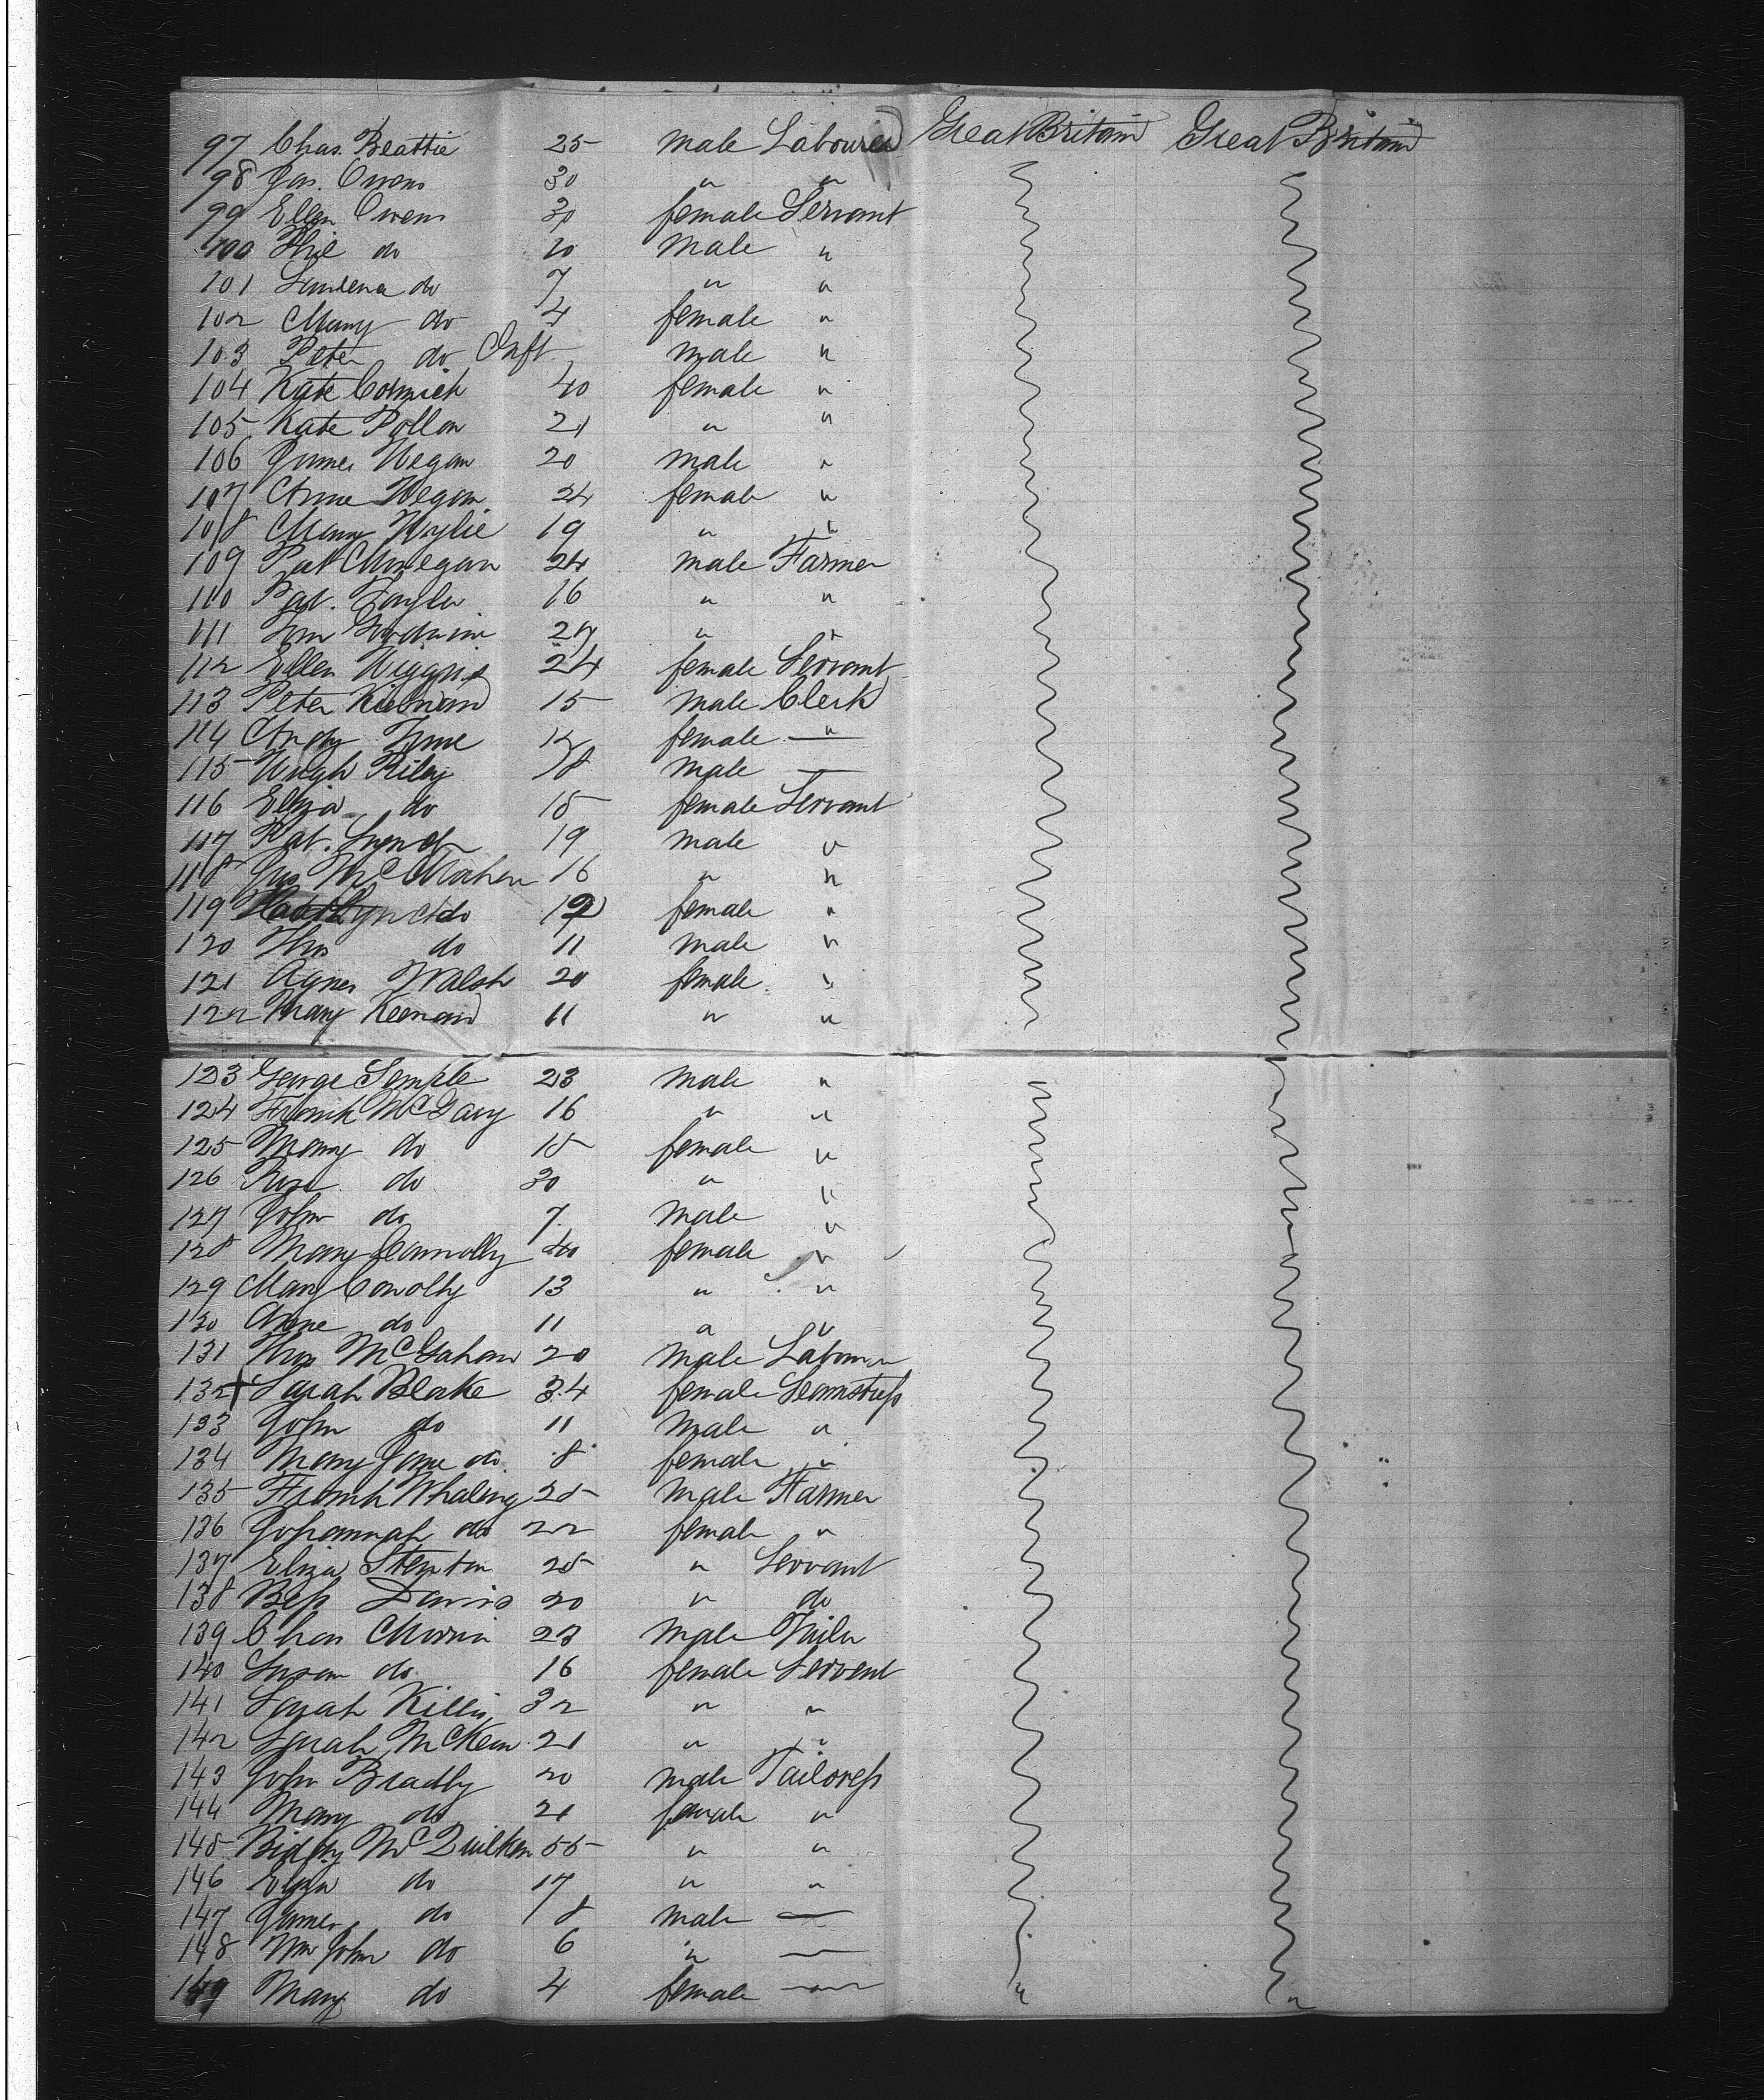 97 Chas. Beattie 25 male Labourer Great Britain Great Britain
98 Jas. Owens 30 " "
99 Ellen Owens 30 female Servant
100 Phil do 20 male "
101 do 7 " "
102 Mary do 4 female "
103 Peter do Inft male "
104 Kate Cormick 40 female "
105 Kate Pollon 21 " "
106 James Hegan 20 male "
107 Anne Hegan 24 female "
108 Mary Wylie 19 " "
109 Pat 24 male Farmer
110 Pat. Taylor 16 " "
111 Tom Goodwin 27 " "
112 Ellen Higgins 24 female Servant
113 Peter Kiernan 15 male Clerk
114 12 female "
115 Hugh Riley 18 male —
116 Eliza do 15 female Servant
117 Pat. Lynch 19 male "
118 Jas McMahen 16 " "
119 do 19 female "
120 Thos do 11 male "
121 Agnes Walsh 20 female "
122 Mary Keenan 11 " "
123 George Semple 23 male "
124 Frank McGary 16 " "
125 Mary do 15 female "
126 Rose do 30 " "
127 John do 7 male "
128 Mary Connolly 40 female "
129 Mary Conolly 13 " "
130 Anne do 11 " "
131 Thos McGahan 20 male Labourer
132 + Sarah Blake 34 female Seamstress
133 John do 11 male "
134 Mary Jane do 8 female "
135 Frank Whaling 25 male Farmer
136 Johannah do 22 female "
137 Eliza Stenton 25 " Servant
138 Bess Davis 20 " do
139 Chas 23 male Tailor
140 Susan do 16 female Servent
141 Sarah Killin 32 " "
142 Sarah McKeon 21 " "
143 John Bradly 20 male Tailoress
144 Mary do 21 female "
145 Bidgy McQuilken 55 " "
146 Eliza do 17 " "
147 James do 18 male —
148 Wm John do 6 " —
149 Mary do 4 female —"—